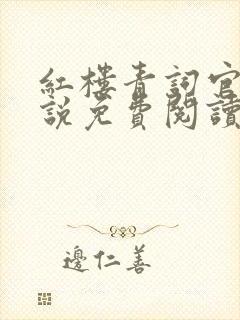 紅樓青詞官
說免費閱讀
邊仁善